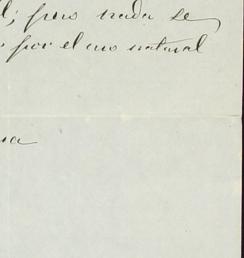 l; pero nada se
por el uso natural
na